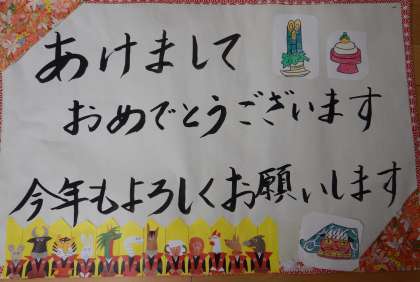 あけまして
おめでとうございます
今年もよろしくお願いします